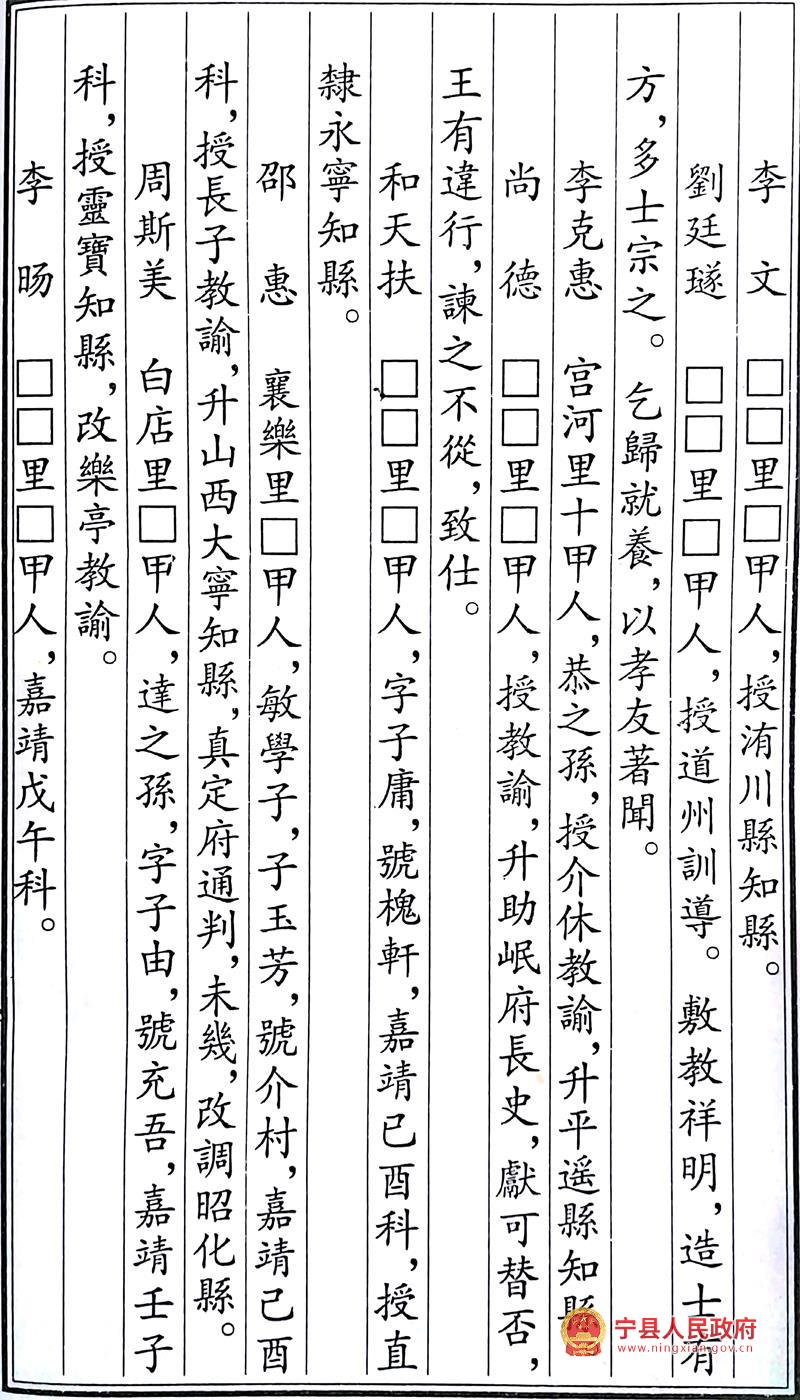 李　文　□□里□甲人，授洧川縣知縣。
劉廷璲　□□里□甲人，授道州訓導。敷教祥明，造士有
方，多士宗之。乞歸就養，以孝友著聞。
李克惠　宫河里十甲人，恭之孫，授介休教諭，升平遥縣知縣。
尚　德　□□里□甲人，授教諭，升助岷府長史，獻可替否，
王有違行，諫之不從，致仕。
和天扶　□□里□甲人，字子庸，號槐軒，嘉靖已酉科，授直
隸永寧知縣。
邵　惠　襄樂里□甲人，敏學子，子玉芳，號介村，嘉靖己酉
科，授長子教諭，升山西大寧知縣，真定府通判，未幾，改調昭化縣。
周斯美　白店里□甲人，達之孫，字子由，號充吾，嘉靖壬子
科，授靈寶知縣，改樂亭教諭。
李　旸　□□里□甲人，嘉靖戊午科。
宁县人民政府
www.ningxian.gov.cn